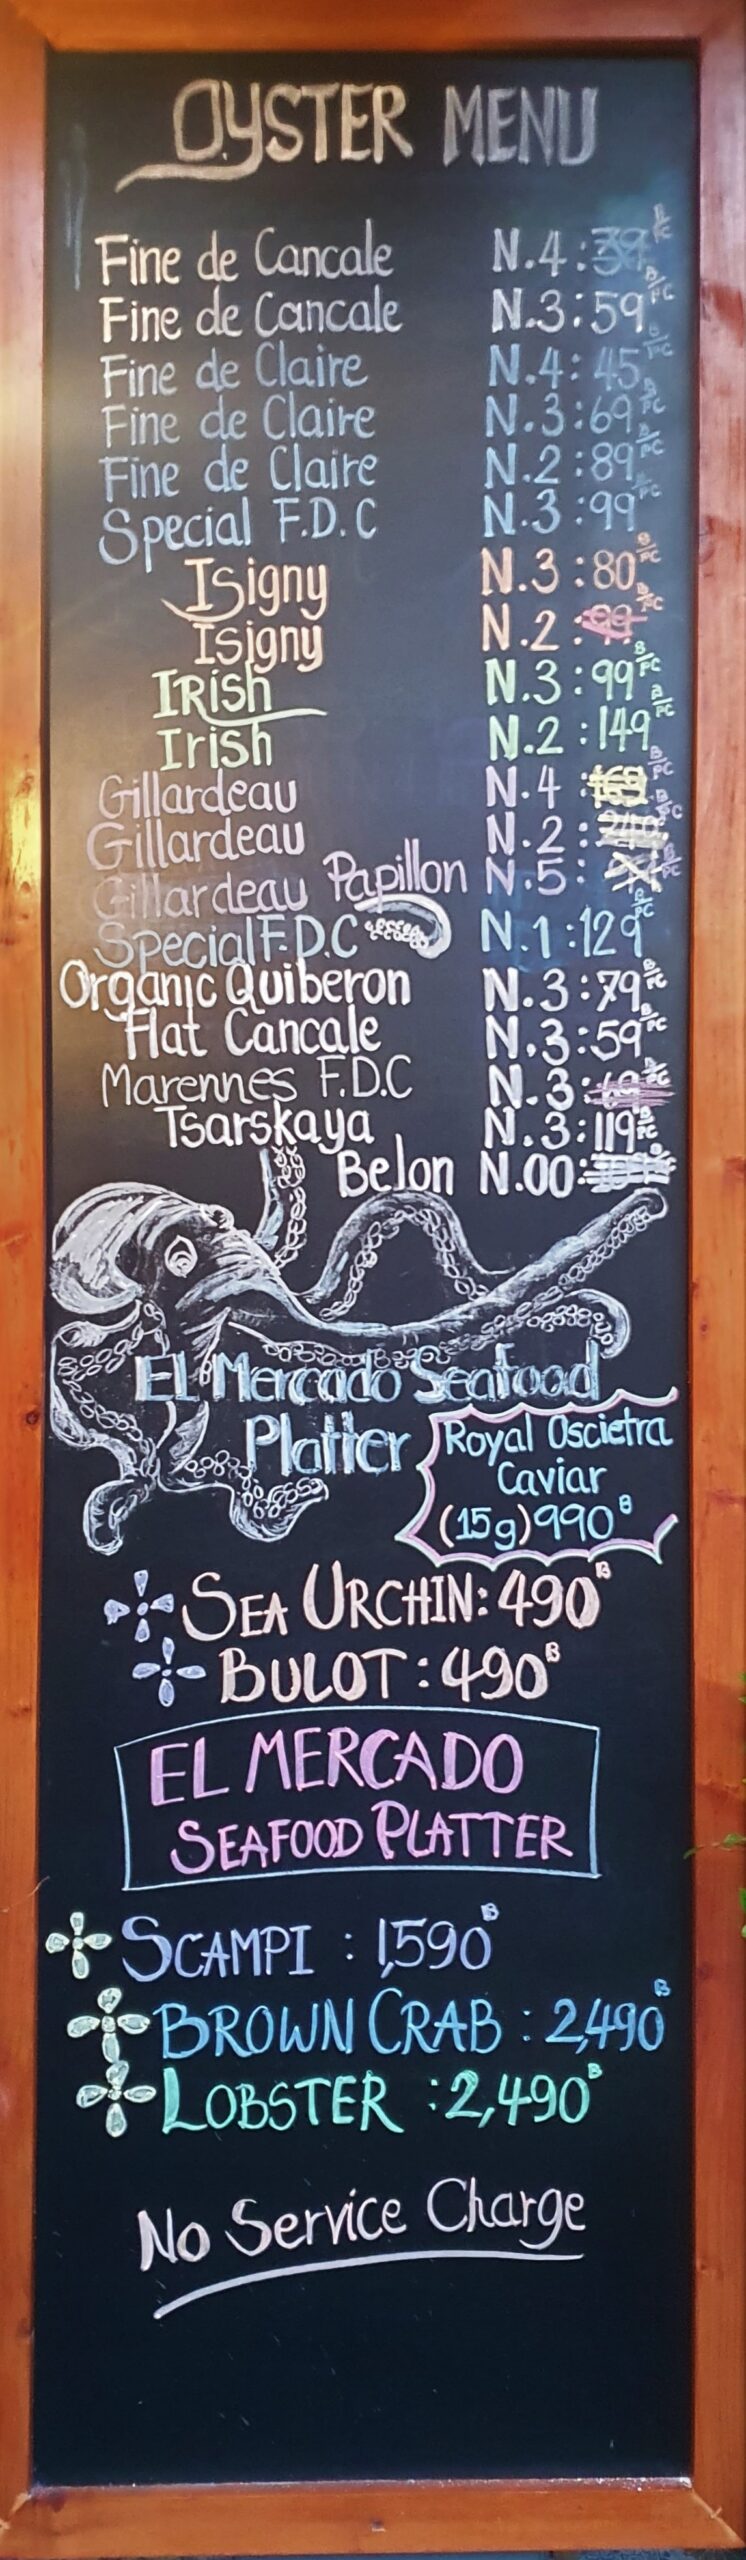 OYSTER MENU
Fine de Cancale N.4:39 B/PC
Fine de Cancale N.3:59 B/PC
Fine de Claire N.4:45 B/PC
Fine de Claire N.3:69 B/PC
Fine de Claire N.2:89 B/PC
Special F.D.C N.3:99 B/PC
Isigny N.3:80 B/PC
Isigny N.2:99 B/PC
IRish N.3:99 B/PC
Irish N.2:149 B/PC
Gillardeau N.4: B/PC
Gillardeau N.2: B/PC
Gillardeau Papillon N.5: B/PC
Special F.D.C N.1:129 B/PC
Organic Quiberon N.3:79 B/PC
Flat Cancale N.3:59 B/PC
Marennes F.D.C N.3: B/PC
Tsarskaya N.3:119 B/PC
Belon N.00:
EL Mercado Seafood
Platter
Royal Oscietra
Caviar
(15g) 990 B
SEA URCHIN: 490 B
BULOT: 490 B
EL MERCADO
SEAFOOD PLATTER
SCAMPI : 1,590 B
BROWN CRAB : 2,490 B
LOBSTER : 2,490 B
No Service Charge